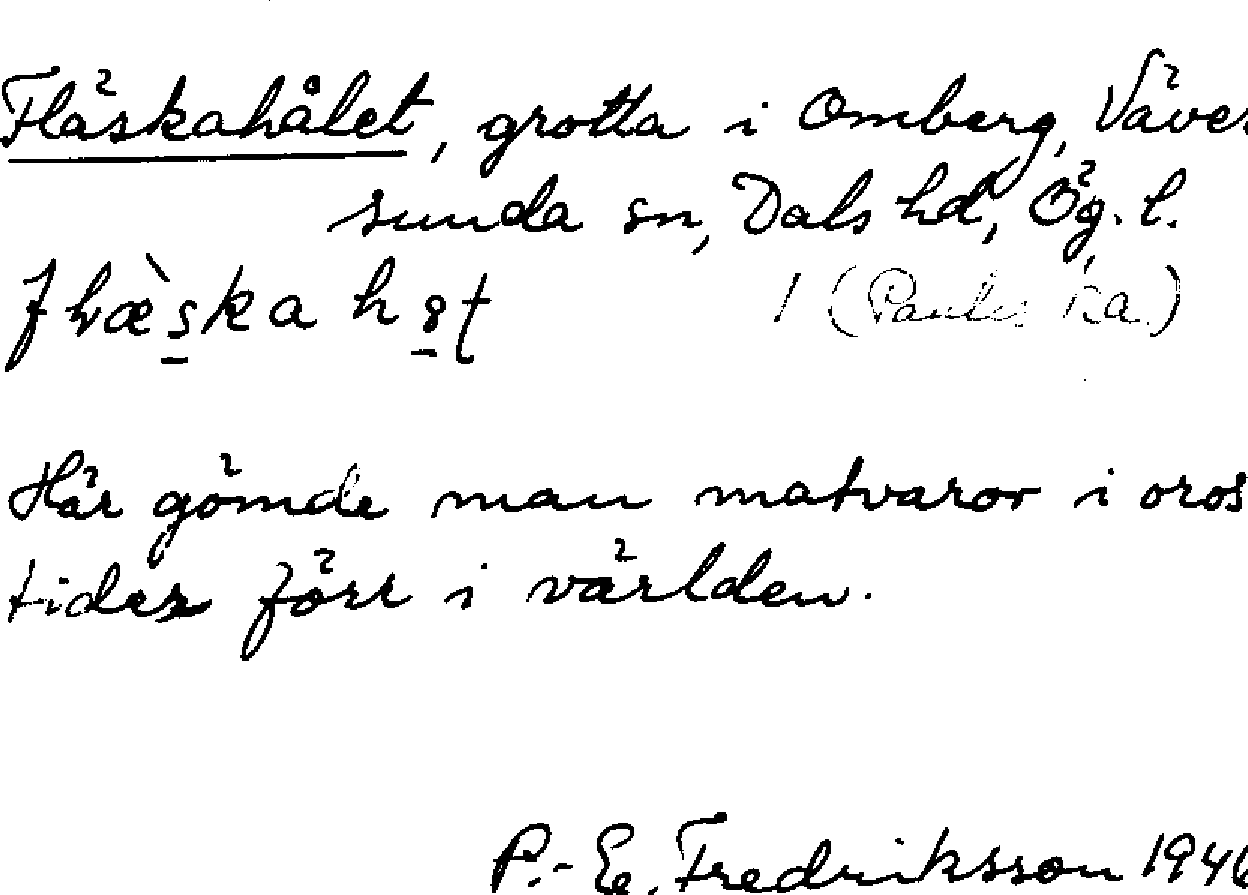 Fläskahålet, grotta i Omberg, Väver
sunda sn, Dals hd, Ög. l.
1 (Paulis ka.)
Här gömde man matvaror i oros
tider förr i världen.
P.-E. Fredriksson 1946